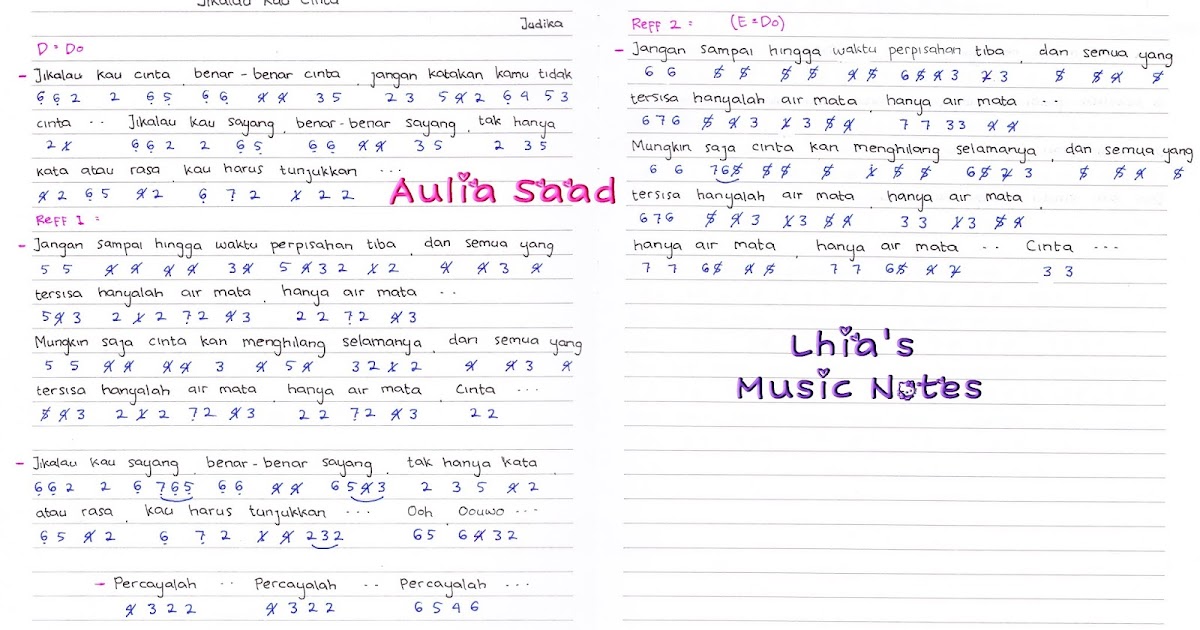 Jikalau Kau Cinta
Judika
D = Do
- Jikalau kau cinta, benar-benar cinta, jangan katakan kamu tidak
6̣ 6̣ 2 2 6̣ 5̣ 6̣ 6̣ 4̸ 4̸ 3 5 2 3 5 4̸ 2 6 4 5 3
cinta .. Jikalau kau sayang, benar-benar sayang, tak hanya
2 1̸ 6̣ 6̣ 2 2 6̣ 5̣ 6̣ 6̣ 4̸ 4̸ 3 5 2 3 5
kata atau rasa, kau harus tunjukkan ...
4̸ 2 6 5 4̸ 2 6̣ 7̣ 2 1̸ 2 2
Aulia Saad
Reff 1 :
- Jangan sampai hingga waktu perpisahan tiba, dan semua yang
5 5 4̸ 4̸ 4̸ 4̸ 3 4̸ 5 4̸ 3 2 1̸ 2 4̸ 4̸ 3 4̸
tersisa hanyalah air mata, hanya air mata ..
5 4̸ 3 2 1̸ 2 7̣ 2 4̸ 3 2 2 7̣ 2 4̸ 3
Mungkin saja cinta kan menghilang selamanya, dan semua yang
5 5 4̸ 4̸ 4̸ 4̸ 3 4̸ 5 4̸ 3 2 1̸ 2 4̸ 4̸ 3 4̸
tersisa hanyalah air mata, hanya air mata, Cinta ...
5̸ 4̸ 3 2 1̸ 2 7̣ 2 4̸ 3 2 2 7̣ 2 4̸ 3 2 2
- Jikalau kau sayang, benar-benar sayang, tak hanya kata,
6̣ 6̣ 2 2 6̣ 7̣ 6̣ 5̣ 6̣ 6̣ 4̸ 4̸ 6 5 4̸ 3 2 3 5 4̸ 2
atau rasa, kau harus tunjukkan ... Ooh Oouwo ...
6̣ 5 4̸ 2 6̣ 7̣ 2 1̸ 4̸ 2 3 2 6 5 6 4̸ 3 2
- Percayalah .. Percayalah .. Percayalah ...
4̸ 3 2 2 4̸ 3 2 2 6 5 4 6
Reff 2 : (E = Do)
- Jangan sampai hingga waktu perpisahan tiba, dan semua yang
6 6 5̸ 5̸ 5̸ 5̸ 4̸ 5̸ 6 5̸ 4̸ 3 2̸ 3 5̸ 5̸ 4̸ 5̸
tersisa hanyalah air mata, hanya air mata ..
6 7 6 5̸ 4̸ 3 1̸ 3 5̸ 4̸ 7 7 3 3 4̸ 4̸
Mungkin saja cinta kan menghilang selamanya, dan semua yang
6 6 7 6 5̸ 5̸ 5̸ 5̸ 1̸ 5̸ 5̸ 6 5̸ 2̸ 3 5̸ 5̸ 4̸ 5̸
tersisa hanyalah air mata, hanya air mata,
6 7 6 5̸ 4̸ 3 1̸ 3 5̸ 4̸ 3 3 1̸ 3 5̸ 4̸
hanya air mata, hanya air mata .. Cinta ...
7 7 6 5̸ 4̸ 5̸ 7 7 6 5̸ 4̸ 2̸ 3 3
Lhia's
Music Notes